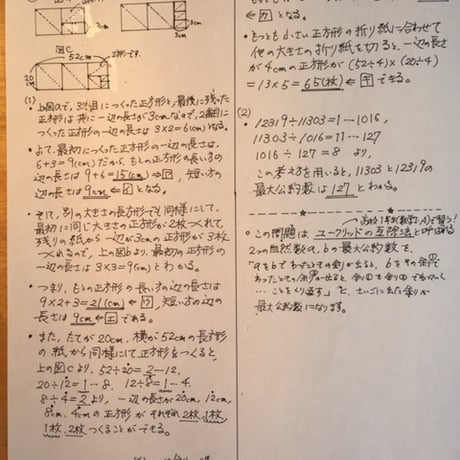 図C
52cm
20cm
3cm
3cm
(1)
・上図aで、3番目につくった正方形と最後に残った
正方形は共に一辺の長さが3cmなので、2番目に
つくった正方形の一辺の長さは 3×2=6(cm)となる。
・よって、最初につくった正方形の一辺の長さは、
6+3=9(cm)だから、もとの正方形の長い方の
辺の長さは 9+6=15(cm)⇒ア、短い方の
辺の長さは 9cm ⇐ イ となる。
・そして、別の大きさの長方形でも同様にして、
最初に同じ大きさの正方形が2枚つくれて、
残りの紙から一辺が3cmの正方形が3枚
つくれるので、上の図より、最初の正方形の
一辺の長さは 3×3=9(cm)とわかる。
・つまり、もとの正方形の長い方の辺の長さは
9×2+3=21(cm)⇐ウ、短い方の辺の
長さは 9cm ⇐ エ である。
・また、たてが20cm、横が52cmの長方形
の紙から同様にして正方形をつくると、
上の図Cより、52÷20=2…12、
20÷12=1…8、12÷8=1…4、
8÷4=2より、一辺の長さが20cm、12cm、
8cm、4cmの正方形がそれぞれ2枚、1枚、
1枚、2枚つくることができる。
⇐ カ となる。
・もっとも小さい正方形の折り紙に合わせて
他の大きさの折り紙を切ると、一辺の長さ
が4cmの正方形が(52÷4)×(20÷4)
=13×5=65(枚)⇐キできる。
(2)
・12319÷11303=1…1016、
11303÷1016=11…127
1016÷127=8 より、
この考え方を用いると、11303と12319の
最大公約数は 127 とわかる。
・この問題はユークリッドの互除法と呼ばれる
2つの自然数a,bの最大公約数を、
最大公約数になります。